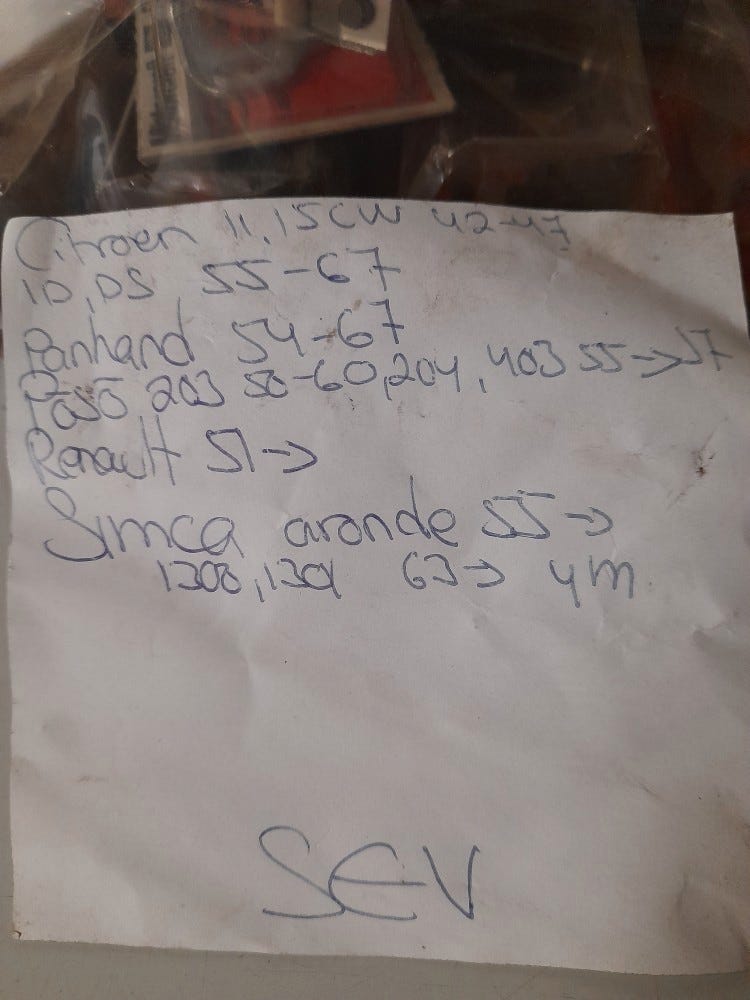 Citroen 11, 15CW 42-47
ID, DS, 55-67
Panhard 54-67
203 50-60, 204, 403 55→57
Renault 51→
Simca aronde 55→
63→ 4m
SEV